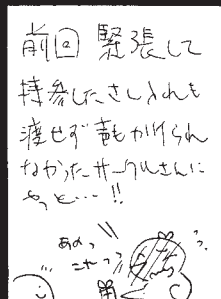 前回 緊張して
持参したさし入れも
渡せず声もかけられ
なかったサークルさんに
やっと…!!
あのっ
これっっ